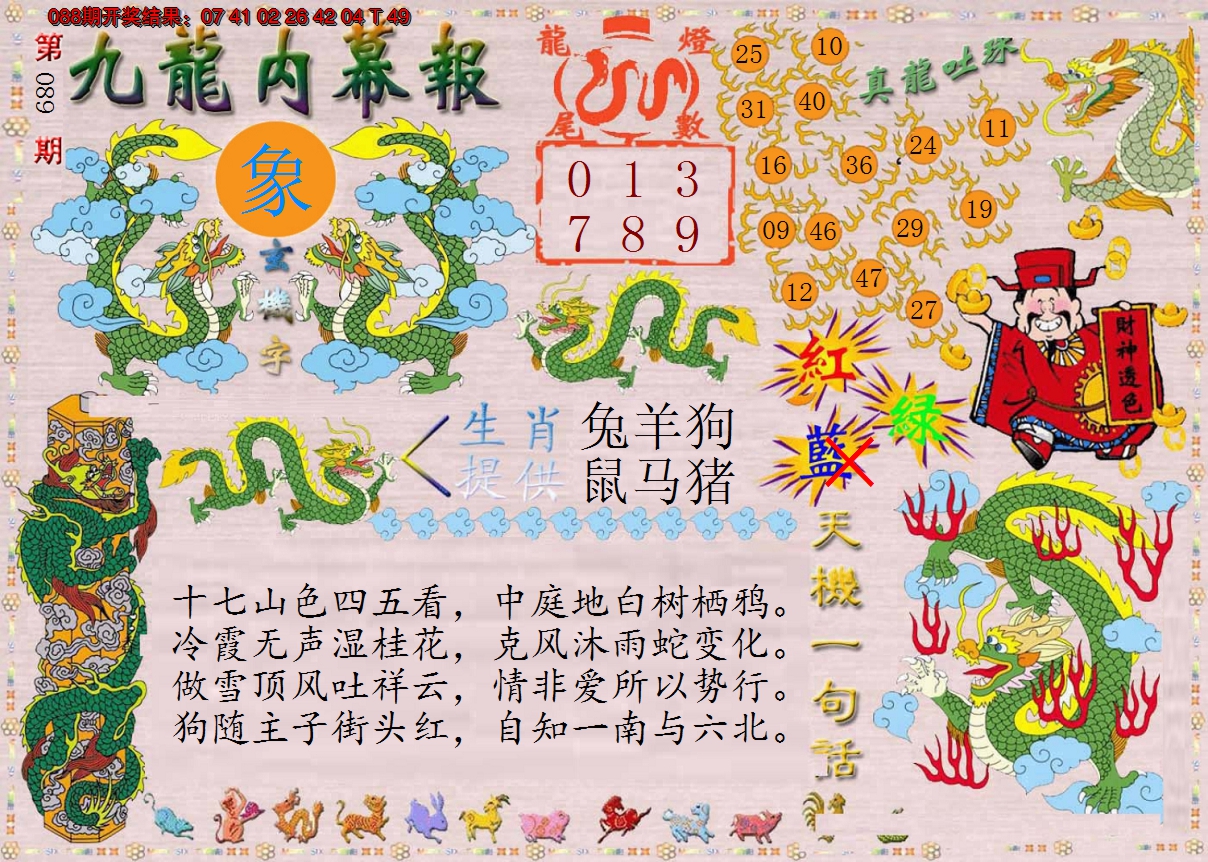 088期开奖结果：07 41 02 26 42 04 T 49
第
089
期
九龍内幕報
象
玄
機
字
龍 燈
尾 數
0 1 3
7 8 9
真龍吐珠
25
10
31
40
16
36
24
11
09
46
29
19
12
47
27
財神透色
紅
綠
藍
生肖
提供
兔羊狗
鼠马猪
天機一句话
十七山色四五看，中庭地白树栖鸦。
冷霞无声湿桂花，克风沐雨蛇变化。
做雪顶风吐祥云，情非爱所以势行。
狗随主子街头红，自知一南与六北。